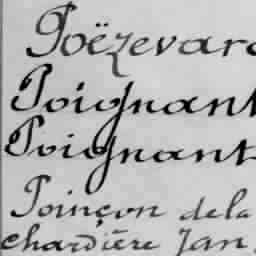 Poëzevara
Poignant
Poignant
Poinçon de la
chardière Jan